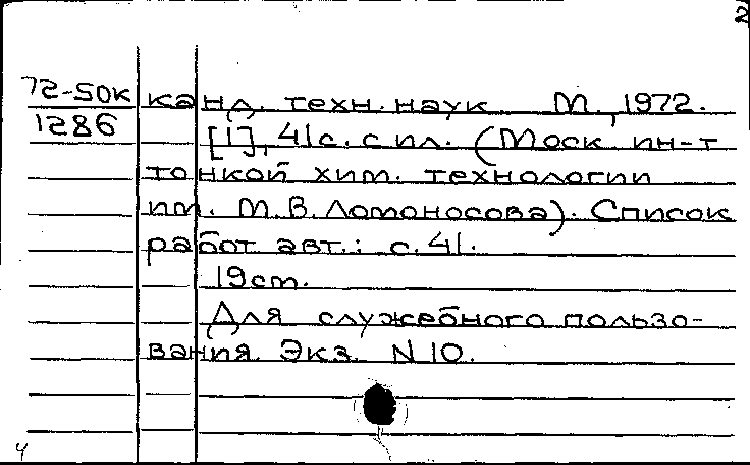 2
72-50к канд. техн. наук М., 1972.
1286 [1], 41с. с ил. (Моск. ин-т
тонкой хим. технологии
им. М.В. Ломоносова). Список
работ авт.: с. 41.
19см.
Для служебного пользо-
вания. Экз. N 10.
4